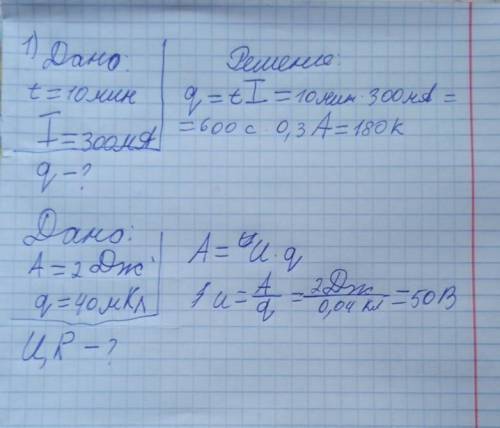 1) Дано:
t = 10 мин
I = 300 мА
q - ?
Решение:
q = t I = 10 мин · 300 мА =
= 600 с · 0,3 А = 180 К
Дано:
A = 2 Дж
q = 40 мКл
U, R - ?
A = U · q
U = A/q = 2 Дж/0,04 Кл = 50 В